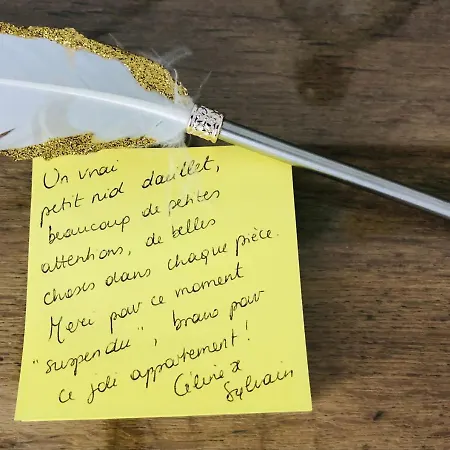 Un vrai
petit nid douillet,
beaucoup de petites
attentions, de belles
choses dans chaque pièce.
Merci pour ce moment
"suspendu", bravo pour
ce joli appartement !
Céline x
Sylvain